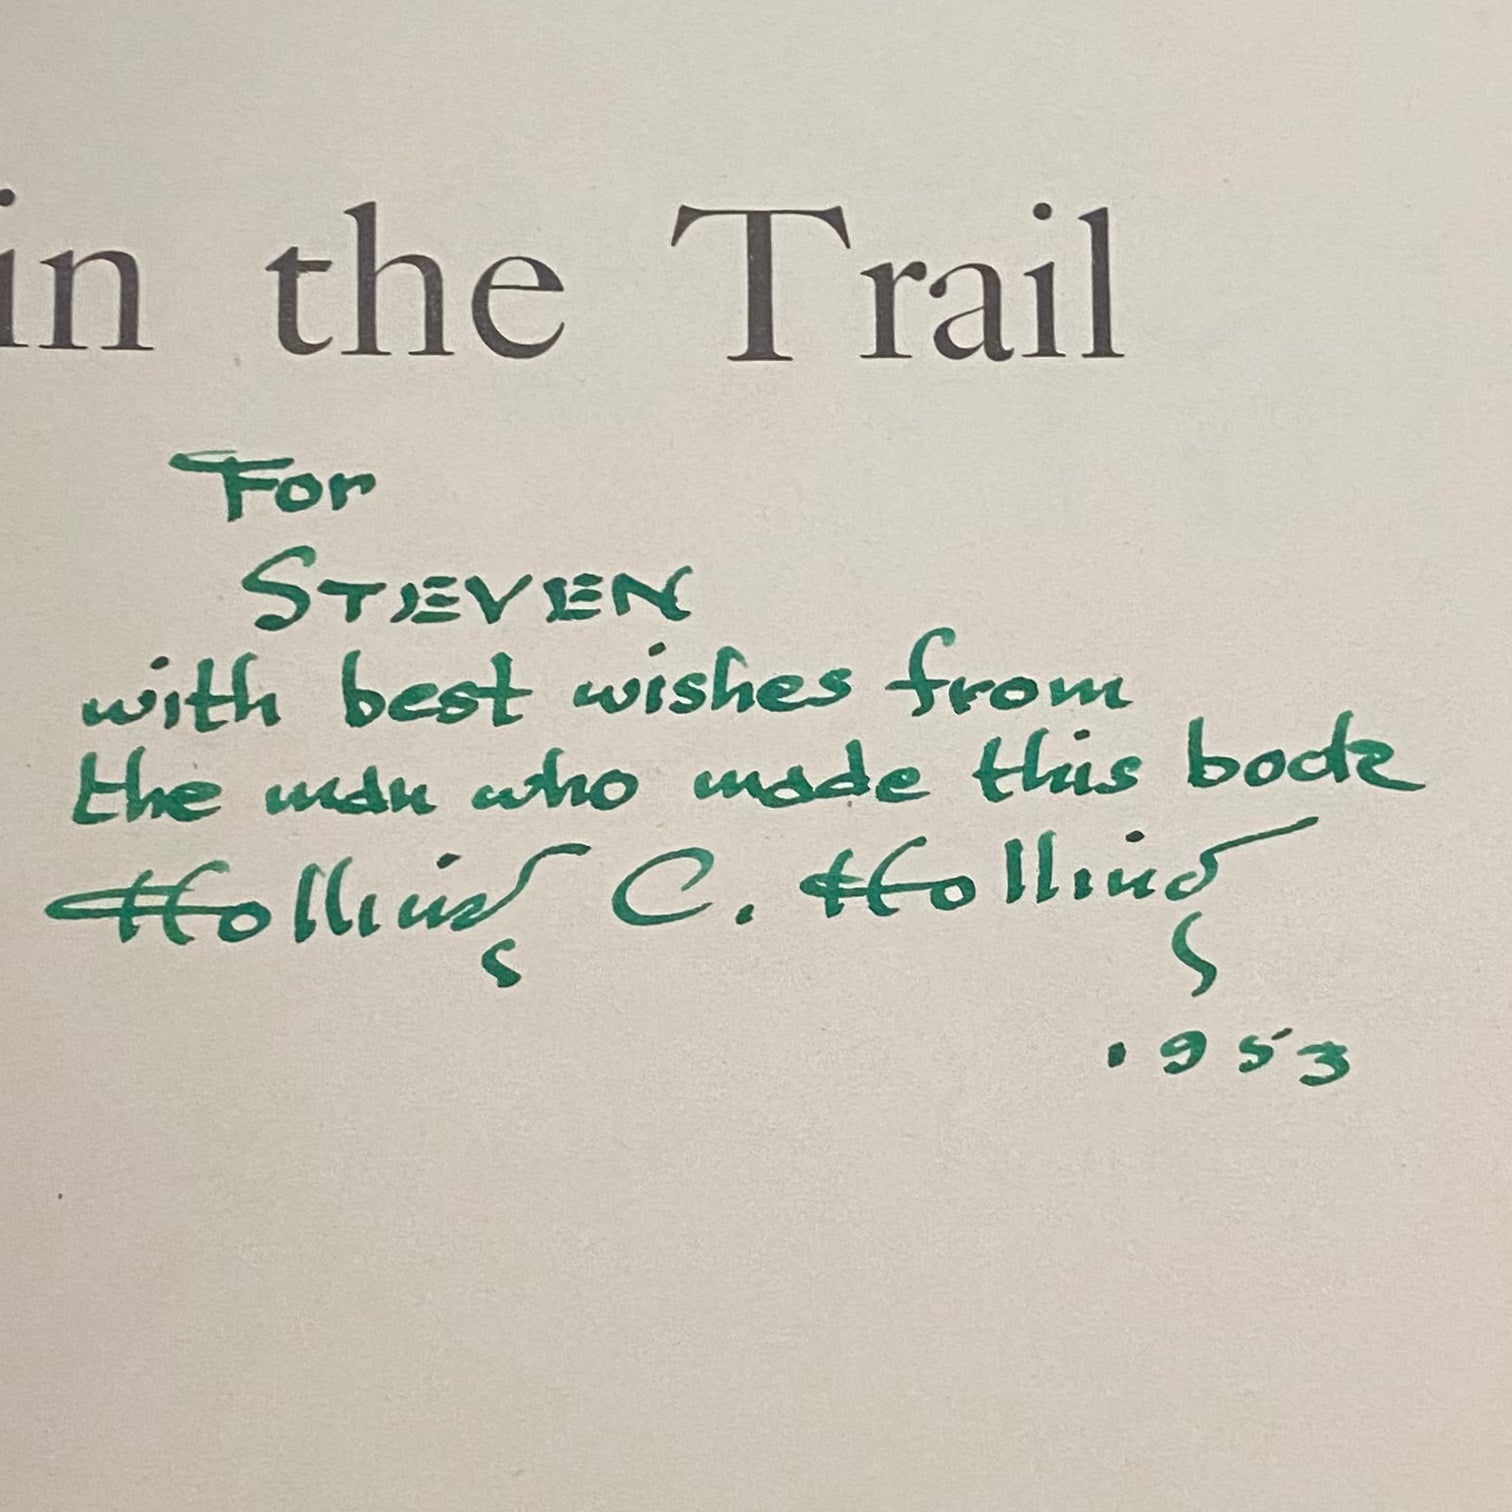 in the Trail
For
STEVEN
with best wishes from
the man who made this book
Holling C. Holling
1953